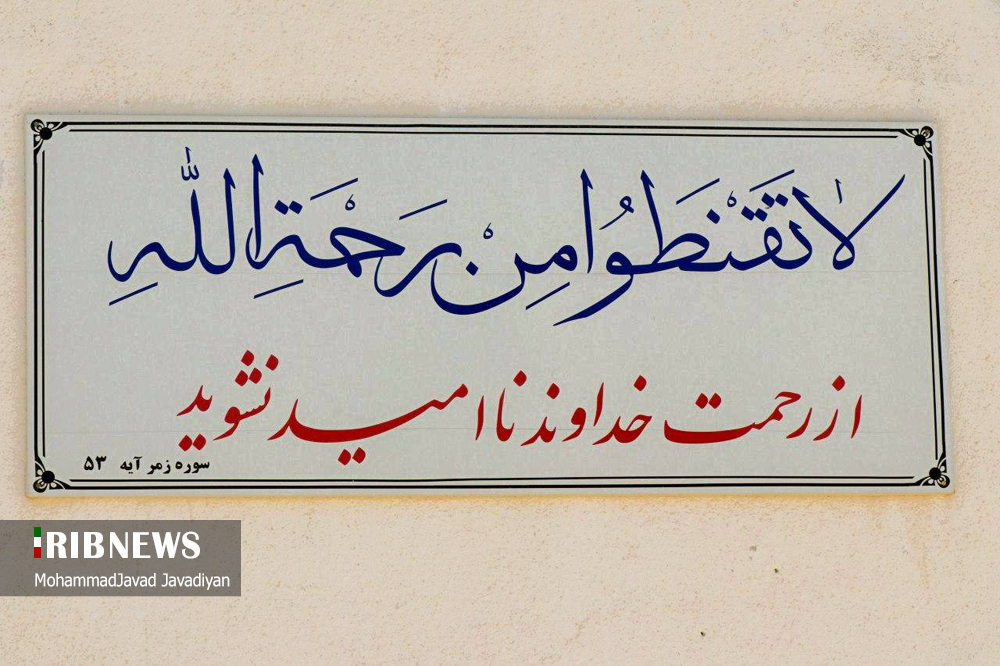 لا تَقْنَطُوا مِنْ رَحْمَةِ اللهِ
از رحمت خداوند ناامید نشوید
سوره زمر آیه ۵۳
IRIBNEWS
MohammadJavad Javadiyan